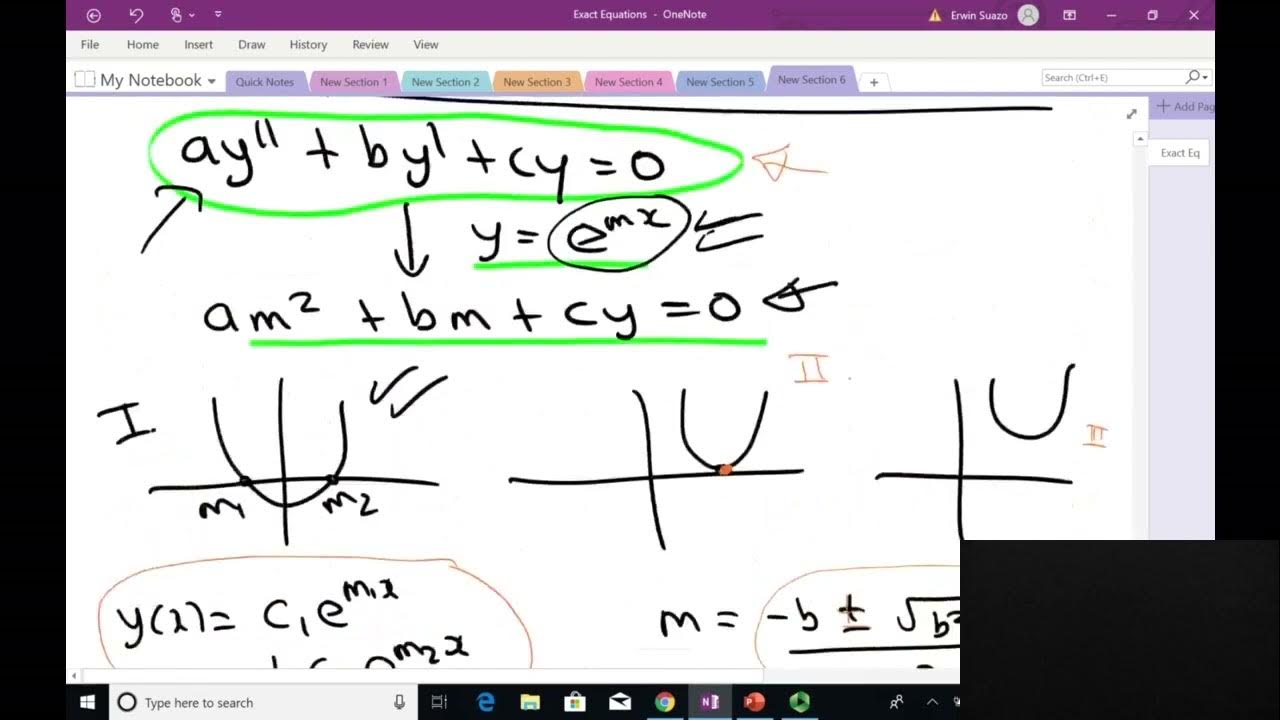 Exact Equations - OneNote
Erwin Suazo
File Home Insert Draw History Review View
My Notebook Quick Notes New Section 1 New Section 2 New Section 3 New Section 4 New Section 5 New Section 6 + Search (Ctrl+E)
+ Add Pag
Exact Eq
ay'' + by' + cy = 0
y = e^{mx}
am² + bm + cy = 0
I. II II
m₁ m₂
y(x) = c₁e^{m₁x}
m = -b ± √b²
e^{m₂x}
Type here to search